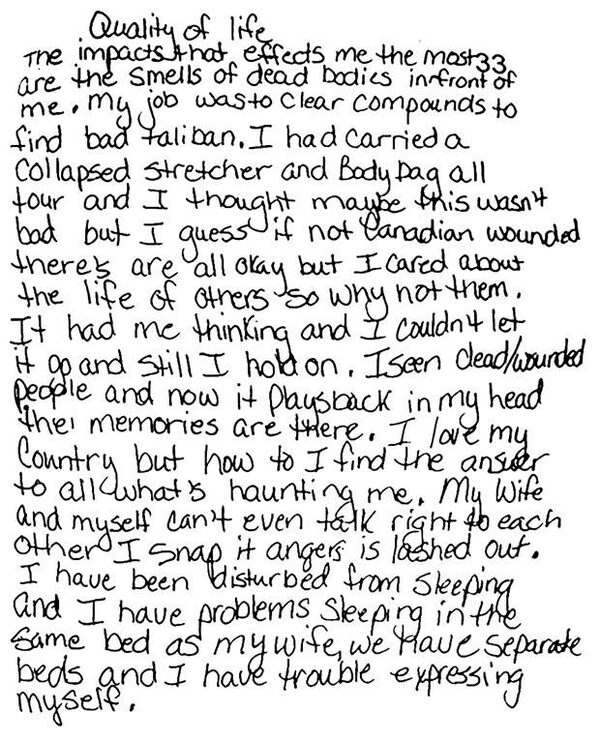 Quality of life
The impacts that effects me the most 33
are the smells of dead bodies infront of
me. my job was to clear compounds to
find bad taliban. I had carried a
collapsed stretcher and Body bag all
tour and I thought maybe this wasn't
bad but I guess if not Canadian wounded
there's are all okay but I cared about
the life of others so why not them.
It had me thinking and I couldn't let
it go and still I hold on. I seen dead/wounded
people and now it playsback in my head
the memories are there. I love my
Country but how to I find the answer
to all what's haunting me. My Wife
and myself can't even talk right to each
other I snap it angers is lashed out.
I have been disturbed from sleeping
and I have problems sleeping in the
same bed as my wife, we have separate
beds and I have trouble expressing
myself.